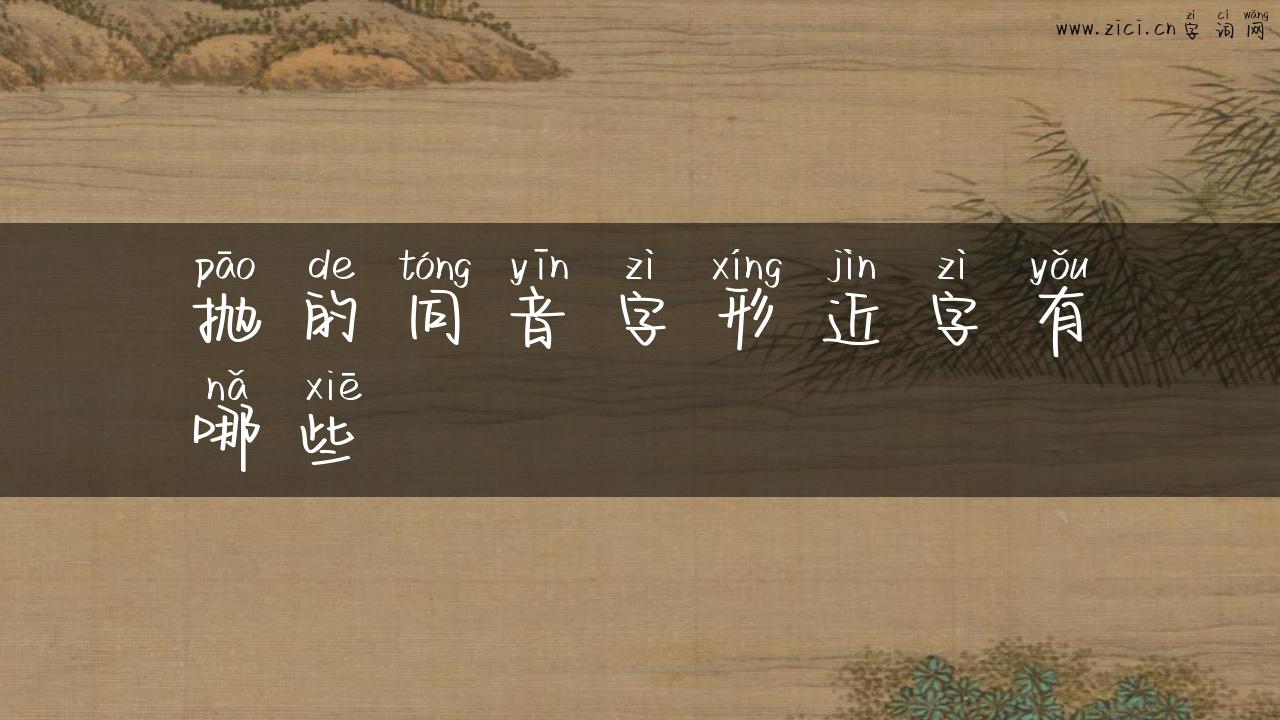 zì cí wǎng
www.zici.cn 字词网
pāo de tóng yīn zì xíng jìn zì yǒu
抛的同音字形近字有
nǎ xiē
哪些